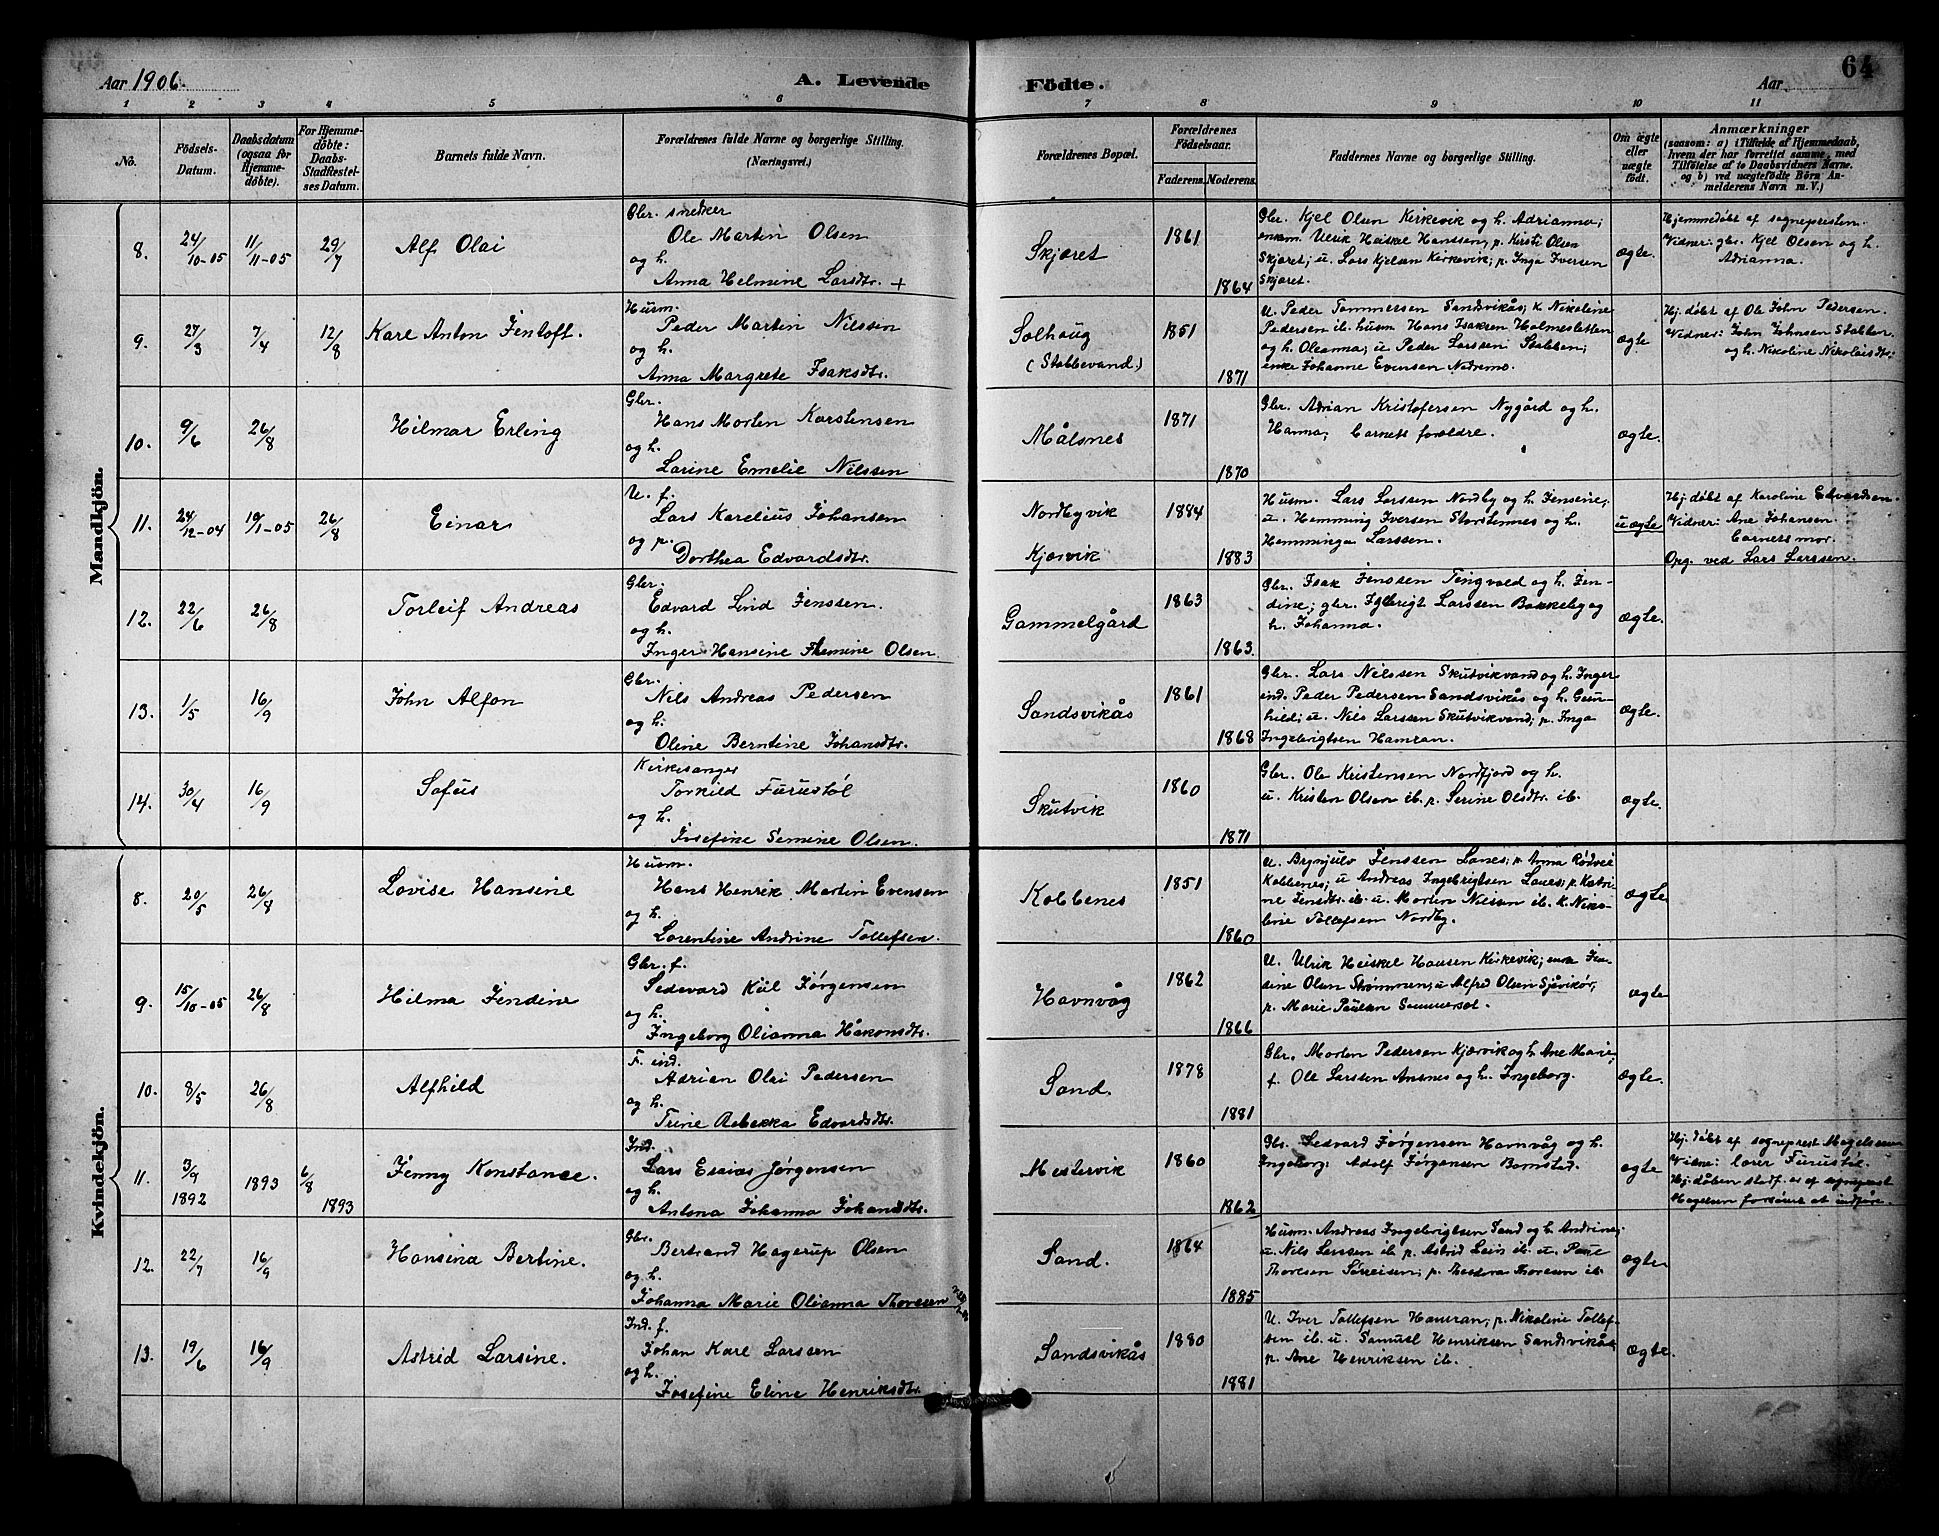 Aar 1906.
A. Levende Födte.
Aar
64
1 2 3 4 5 6 7 8 9 10 11
No.
Födsels-Datum.
Daabsdatum (ogsaa for Hjemme-döbte).
For Hjemme-döbte: Daabs-Stadfæstel-ses Datum.
Barnets fulde Navn.
Forældrenes fulde Navne og borgerlige Stilling.
(Næringsvei.)
Forældrenes Bopæl.
Forældrenes Födselsaar.
Faderens. Moderens.
Faddernes Navne og borgerlige Stilling.
Om ægte eller uægte födt.
Anmærkninger
(saasom: a) i Tilfælde af Hjemmedaab, hvem der har forrettet samme, med Tilföielse af to Daabsvidners Navne, og b) ved uægtefödte Börn An-melderens Navn m. V.)
Mandkjön.
8. 24/10-05 11/11-05 29/7 Alf Olai
Gbr. snedker
Ole Martin Olsen
og h.
Anna Helmine Larsdtr. +
Skjæret 1861 1864
Gbr. Kjel Olsen Kirkevik og h. Adrianna;
enkem. Ulrik Heiskel Hanssen; p. Kirsti Olsen
Skjæret; u. Lars Kjelsen Kirkevik; p. Inga Iversen
Skjæret.
ægte.
Hjemmedøbt af sognepresten.
Vidner: gbr. Kjel Olsen og h.
Adrianna.
9. 27/3 7/4 12/8 Karl Anton Jentoft.
Husm.
Peder Martin Nilssen
og h.
Anna Margrete Isaksdtr.
Solhaug
(Stabbevand.)
1851 1871
U. Peder Tommersen Sandsvikås; k. Nikoline
Pedersen ib. husm Hans Isaksen Holmesletten
og h. Oleanna; u Peder Larssen Stabben;
enke Johanne Evensen Nedremo.
ægte
Hj. døbt af Ole John Pedersen.
Vidner: John Johnsen Stabben
og h. Nikoline Nikolaisdtr.
10. 9/6 26/8 Hilmar Erling
Gbr.
Hans Morten Karstensen
og h.
Larine Emelie Nilssen
Målsnes 1871 1870
Gbr. Adrian Kristofersen Nygård og h.
Hanna; barnets forældre.
ægte.
11. 24/12-04 19/1-05 26/8 Einar
U. f.
Lars Karelius Johansen
og p.
Dorthea Edvardsdtr.
Nordbyvik
Kjærvik
1884 1883
Husm. Lars Larssen Nordby og h. Jensine;
u. Hemming Iversen Storstennes og h.
Hemminga Larssen.
uægte
Hj. døbt af Karoline Edvardsen.
Vidner: Ane Johansen.
Barnets mor.
Opg. ved Lars Larssen.
12. 22/6 26/8 Torleif Andreas
Gbr.
Edvard Lind Jenssen.
og h.
Inger Hansine Olsen.
Gammelgård 1863 1863.
Gbr. Isak Jenssen Tingvold og h. Jen-
dine; gbr. Larssen Bakkeby og
h. Johanna.
ægte.
13. 1/5 16/9 John Alfon
Gbr.
Nils Andreas Pedersen
og h.
Oline Berntine Johansdtr.
Sandsvikås 1861 1868
Gbr. Lars Nilssen Skutvikvand og h. Inger
ind. Peder Pedersen Sandsvikås og h. Gun-
hild; u. Nils Larssen Skutvikvand; p. Inga
Ingebrigtsen Hamran.
ægte.
14. 30/4 16/9 Sofus
Kirkesanger
Torkild Furustøl
og h.
Josefine Semine Olsen.
Skutvik 1860 1871
Gbr. Ole Kristensen Nordfjord og h.
u. Kristen Olsen ib. p. Serine Olsdtr. ib.
ægte.
Kvindekjön.
8. 20/5 26/8 Lovise Hansine
Husm.
Hans Henrik Martin Evensen
og h.
Lorentine Andrine Tollefsen.
Kobbenes 1851 1860
U. Brynjulv Jenssen Lanes; p. Anna Rødvei
Kobbenes; u Andreas Ingebrigtsen Lanes; p. Katri-
ne Jensdtr. ib. u. Morten Nilssen ib. k. Niko-
line Tollefsen Nordby.
ægte
9. 15/10-05 26/8 Hilma Jendine
Gbr. f.
Sedevard Kiil Jørgensen
og h.
Ingeborg Olianna Håkonsdtr.
Havnvåg 1862 1866
U. Ulrik Heiskel Hansen Kirkevik; enke Jen-
sine Olsen Strømmen; u Alfred Olsen Sjåvikør;
p. Marie Paulsen Sommerset.
ægte
10. 8/5 26/8 Alfhild
F. ind.
Adrian Olai Pedersen
og h.
Trine Rebekka Edvardsdtr.
Sand. 1878 1881
Gbr. Morten Pedersen Kjærvik og h. Ane Marie;
f. Ole Larssen Ansnes og h. Ingeborg.
ægte.
11. 3/9 1892 1893 6/8 1893 Jenny Konstance.
Ind.
Lars Esaias Jørgensen
og h.
Antona Johanna Johansdtr.
Mestervik 1860 1862
Gbr. Sedvard Jørgensen Havnvåg og h.
Ingeborg; Adolf Jørgensen Bomstad.
ægte
Hj. døbt af sogneprest Magelssen
Vidne: lærer Furustøl.
Hj. dåben stadf. er af sogneprest
Magelssen forsømt at indføre.
12. 22/7 16/9 Hansina Bertine.
Gbr.
Bertrand Hagerup Olsen
og h.
Johanna Marie Olianna Thoresen
Sand. 1864 1885
Husm. Andreas Ingebrigtsen Sand og h. Andrine;
u. Nils Larssen ib p. Astrid Lein ib. u. Peue
Thoresen Sørreisen; p. Thoresen ib.
ægte.
13. 19/6 16/9 Astrid Larsine.
Ind. f.
Johan Karl Larssen
og h.
Josefine Eline Henriksdtr.
Sandsvikås 1880 1881
U. Iver Tollefsen Hamran; p. Nikoline Tollef-
sen ib. u. Samuel Henriksen Sandsvikås
p. Ane Henriksen ib.
ægte.